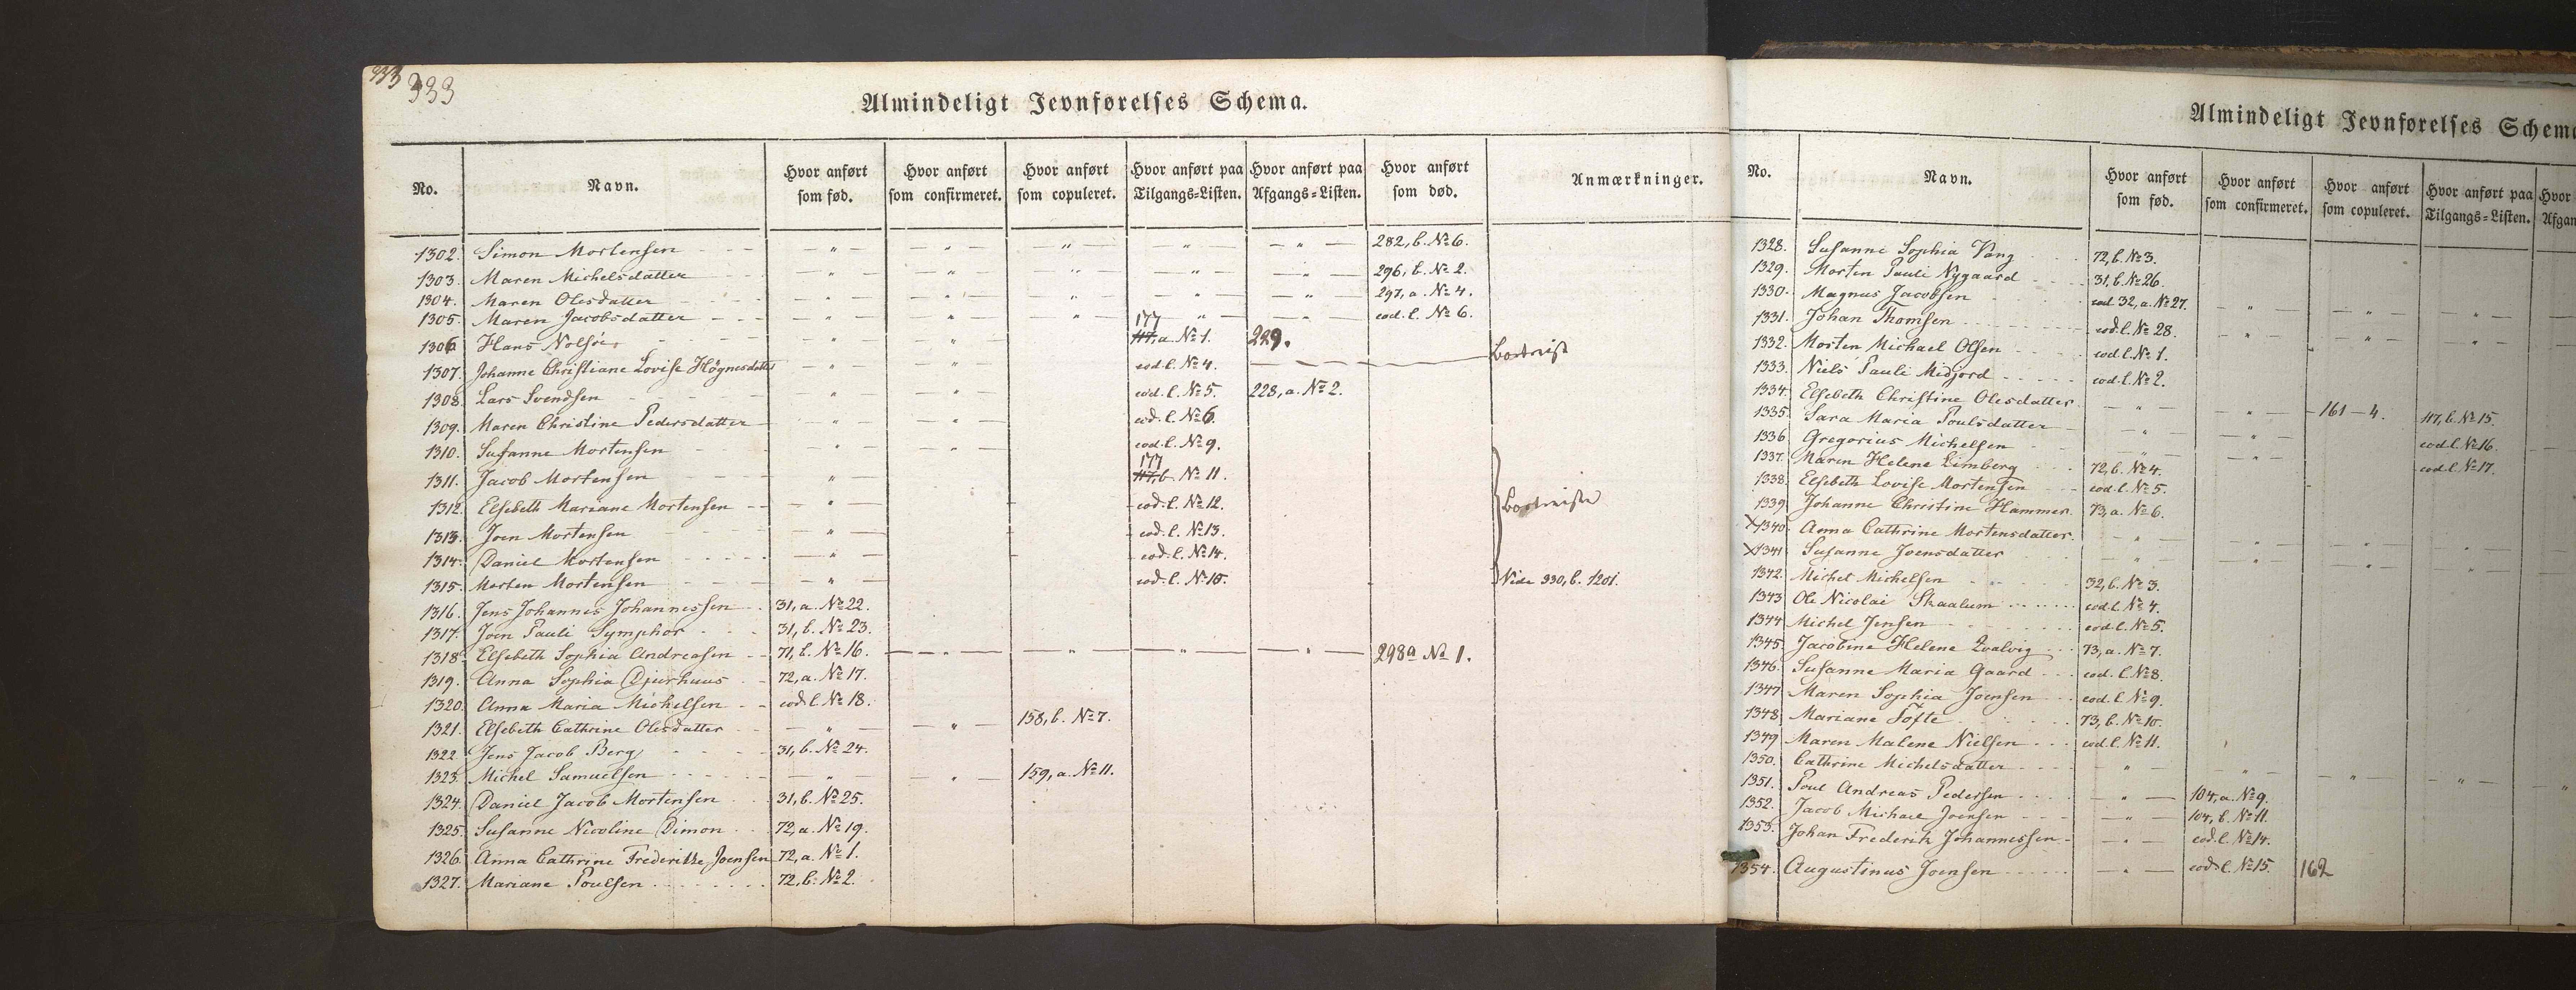 333
333
Almindeligt Jevnførelses Schema.
No. Navn. Hvor anført som fød. Hvor anført som confirmeret. Hvor anført som copuleret. Hvor anført paa Tilgangs-Listen. Hvor anført paa Afgangs-Listen. Hvor anført som død. Anmærkninger.
1302. Simon Mortensen — " — — " — " — " — — " — 282, b. No 6.
1303. Maren Michelsdatter — " — — " — " — " — — " — 296, b. No 2.
1304. Maren Olesdatter — " — — " — " — " — — " — 297, a. No 4.
1305. Maren Jacobsdatter — " — — " — " — " — — " — eod. l. No 6.
1306. Hans Nolsöe — " — — " — 177 117, a. No 1. 229.
1307. Johanne Christiane Lovise Högnesdatter — " — — " — eod. l. No 4. — — — Bortreist
1308. Lars Svendsen — " — — " — eod. l. No 5. 228, a. No 2.
1309. Maren Christine Pedersdatter — " — — " — eod. l. No 6.
1310. Susanne Mortensen — " — — " — eod. l. No 9.
1311. Jacob Mortensen — " — 177 117, b. No 11.
1312. Elsebeth Mariane Mortensen — " — eod. l. No 12. Bortreiste
1313. Joen Mortensen — " — eod. l. No 13.
1314. Daniel Mortensen — " — eod. l. No 14.
1315. Morten Mortensen — " — eod. l. No 15. Vide 330, b. 1201.
1316. Jens Johannes Johannessen 31, a. No 22.
1317. Joen Pauli Symphor 31, b. No 23.
1318. Elsebeth Sophia Andreasen 71, b. No 16. — " — — " — — " — — " — 298a No 1.
1319. Anna Sophia Djurhuus 72, a. No 17.
1320. Anna Maria Michelsen eod. l. No 18.
1321. Elsebeth Cathrine Olesdatter — " — — " — 158, b. No 7.
1322. Jens Jacob Berg 31, b. No 24.
1323. Michel Samuelsen — " — — " — 159, a. No 11.
1324. Daniel Jacob Mortensen 31, b. No 25.
1325. Susanne Nicoline Dimon 72, a. No 19.
1326. Anna Cathrine Frederikke Joensen 72, a. No 1.
1327. Mariane Poulsen 72, b. No 2.
Almindeligt Jevnførelses Schema
No. Navn. Hvor anført som fød. Hvor anført som confirmeret. Hvor anført som copuleret. Hvor anført paa Tilgangs-Listen. Hvor Afgan
1328. Susanne Sophia Vang 72, b. No 3.
1329. Morten Pauli Nygaard 31, b. No 26.
1330. Magnus Jacobsen 32, a. No 27.
1331. Johan Thomsen eod. l. No 28.
1332. Morten Michael Olsen eod. l. No 1.
1333. Niels Pauli Midjord eod. l. No 2.
1334. Elsebeth Christine Olesdatter — " — — " — 161 — 4.
1335. Sara Maria Poulsdatter — " — — " — 117, b. No 15.
1336. Gregorius Michelsen — " — — " — eod. l. No 16.
1337. Maren Helene Limberg 72, b. No 4. eod. l. No 17.
1338. Elsebeth Lovise Mortensen eod. l. No 5.
1339. Johanne Christine Hammer 73, a. No 6.
×1340. Anna Cathrine Mortensdatter — " — — " — — " —
×1341. Susanne Joensdatter — " — — " — — " —
1342. Michel Michelsen 32, b. No 3.
1343. Ole Nicolai Skaalum eod. l. No 4.
1344. Michel Jensen eod. l. No 5.
1345. Jacobine Helene Qvalvig 73, a. No 7.
1346. Susanne Maria Gaard eod. l. No 8.
1347. Maren Sophia Joensen eod. l. No 9.
1348. Mariane Tofte 73, b. No 10.
1349. Maren Malene Nielsen eod. l. No 11.
1350. Cathrine Michelsdatter — " — — " — — " —
1351. Poul Andreas Pedersen — " — 104, a. No 9.
1352. Jacob Michael Joensen — " — 104, b. No 11.
1353. Johan Frederik Johannessen — " — eod. l. No 14.
1354. Augustinus Joensen — " — eod. l. No 15. 162